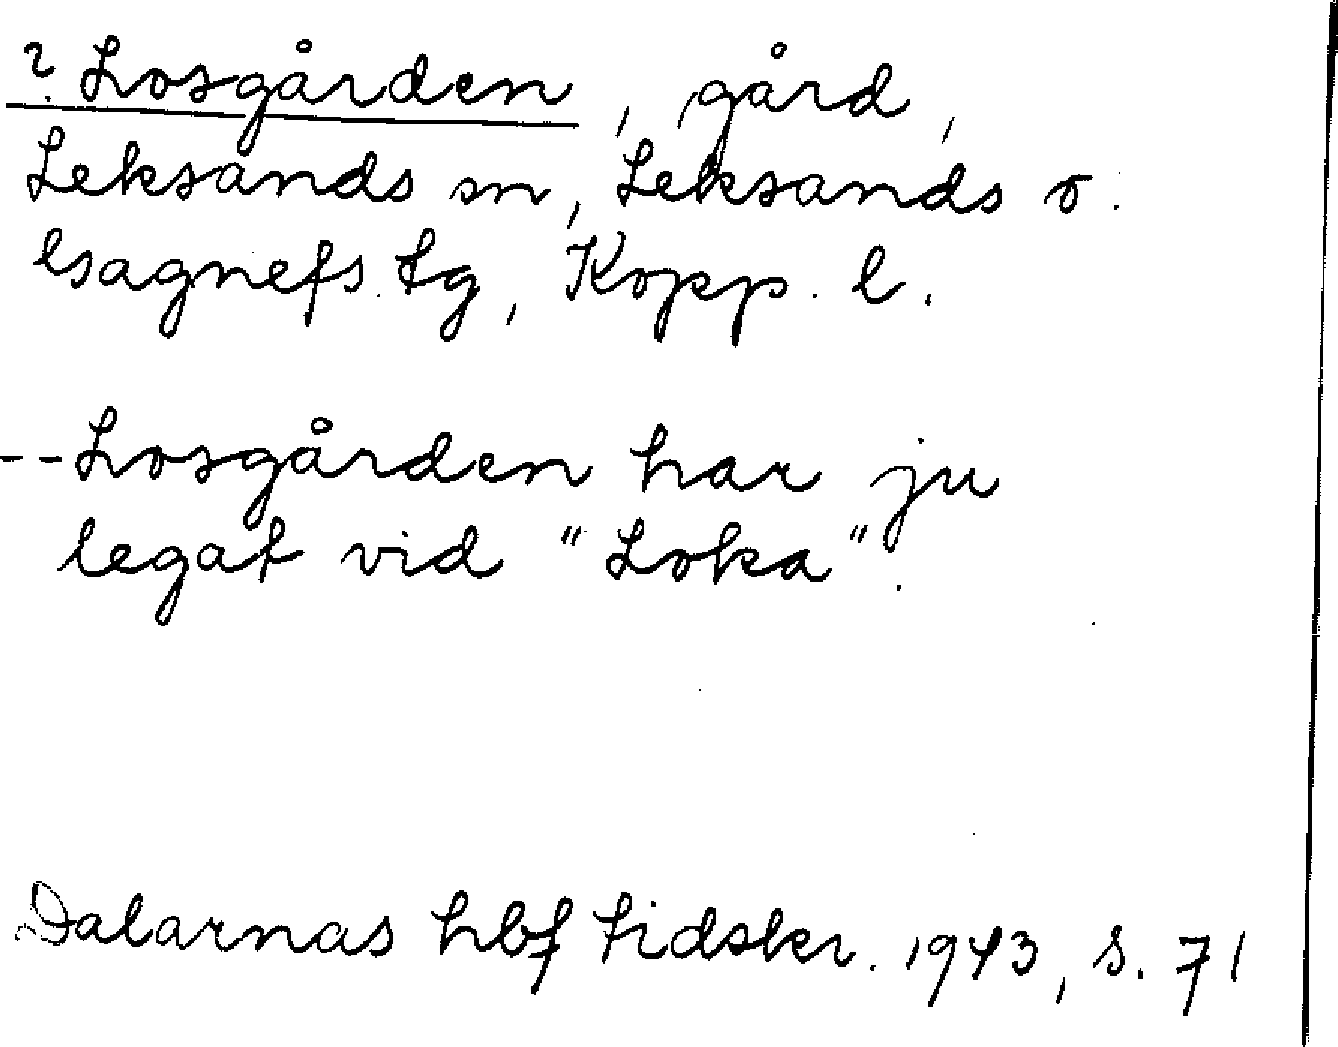 ? Losgården, gård,
Leksands sn, Leksands o.
Gagnefs tg, Kopp. l.
-- Losgården har ju
legat vid "Loka".
Dalarnas hbf tidskr. 1943, s. 71